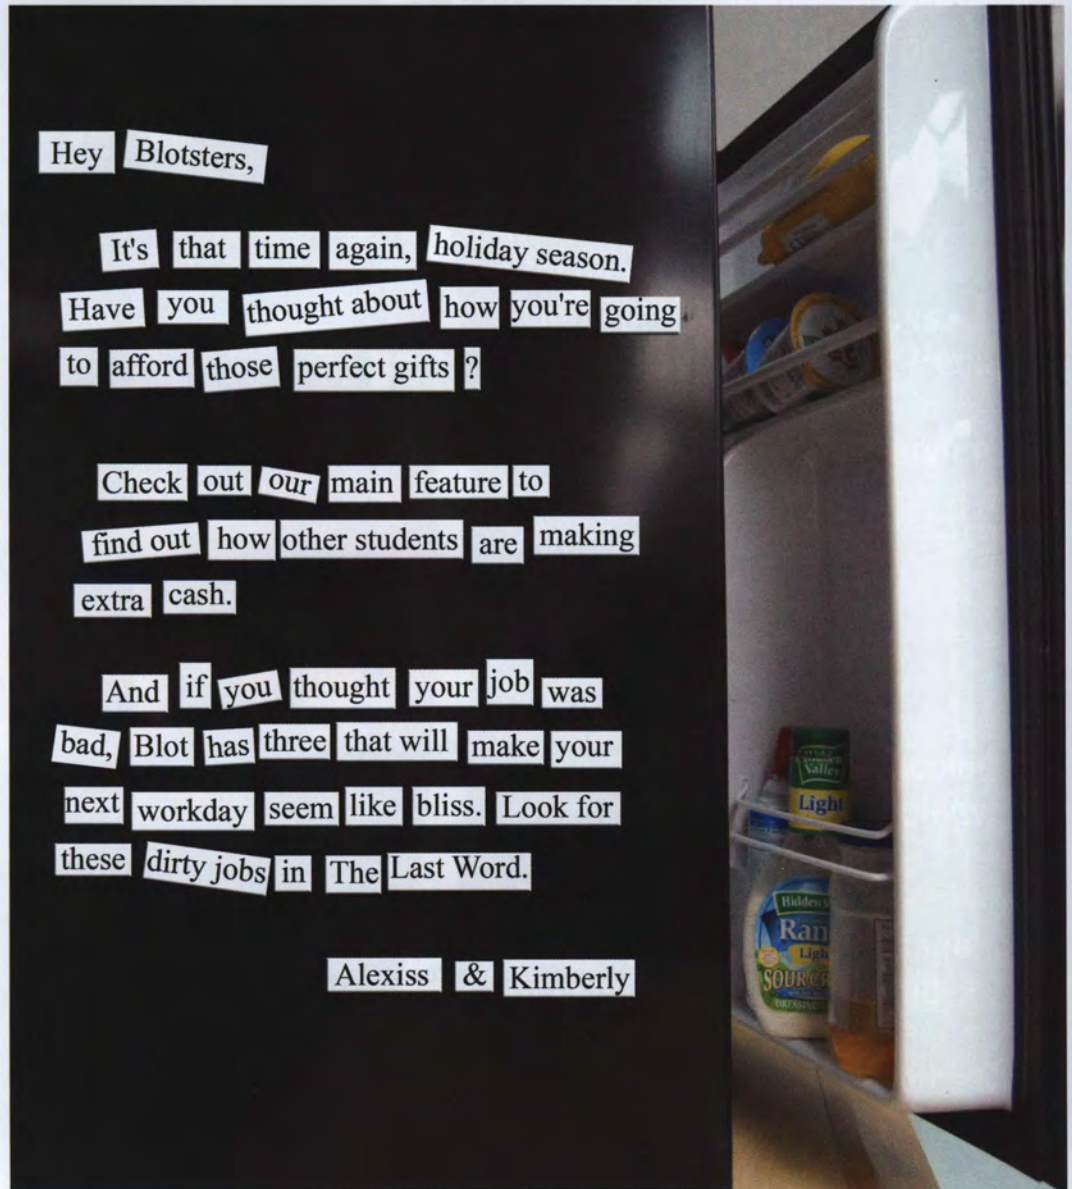 Hey Blotsters,
It's that time again, holiday season.
Have you thought about how you're going
to afford those perfect gifts ?
Check out our main feature to
find out how other students are making
extra cash.
And if you thought your job was
bad, Blot has three that will make your
next workday seem like bliss. Look for
these dirty jobs in The Last Word.
Alexiss & Kimberly
Valley
Light
Hidden
Ran
Light
SOUR CR
DRESSING